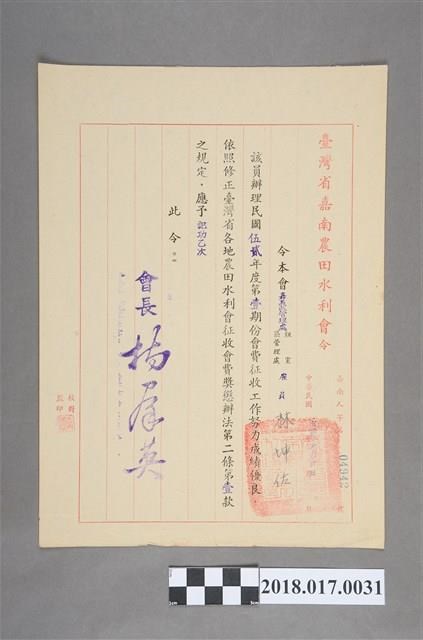 臺灣省嘉南農田水利會令
嘉南人字
04942
中華民國
令本會嘉義區管理處
區管理處
雇員
林坤佐
該員辦理民國伍貳年度第壹期份會費征收工作努力成績優良，
依照修正臺灣省各地農田水利會征收會費獎懲辦法第二條第壹款
之規定，應予記功乙次
此令。
會長 楊群英
校對
監印
2018.017.0031